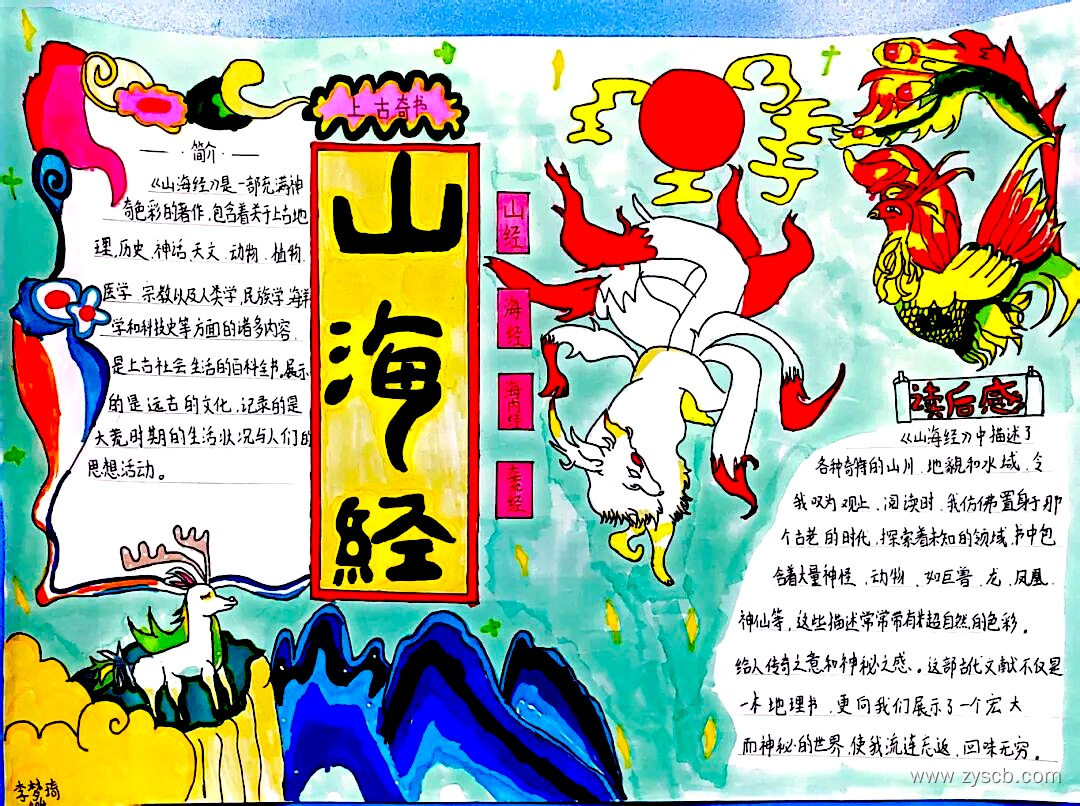 上古奇书
山海经
·简介·
《山海经》是一部充满神
奇色彩的著作,包含着关于上古地
理,历史、神话,天文、动物、植物、
医学、宗教以及人类学,民族学,海洋
学和科技史等方面的诸多内容,
是上古社会生活的百科全书,展示
的是远古的文化,记录的是
大荒时期的生活状况与人们的
思想活动。
山经
海经
海内经
大荒经
读后感
《山海经》中描述了
各种奇特的山川、地貌和水域,令
我叹为观止,阅读时,我仿佛置身于那
个古老的时代,探索着未知的领域,书中包
含着大量神怪、动物、如巨兽、龙、凤凰、
神仙等,这些描述常常带有超自然的色彩。
给人传奇之意和神秘之感。这部古代文献不仅是
一本地理书、更向我们展示了一个宏大
而神秘的世界,使我流连忘返,回味无穷。
李梦琦
www.zyscb.com